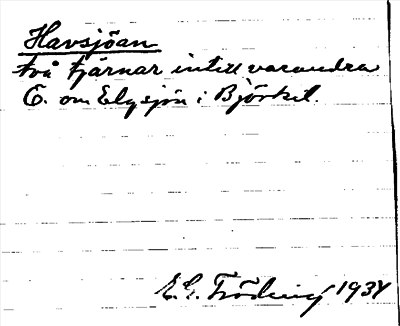 Havsjöan
två tjärnar intill varandra
Ö. om Elgsjön i Björksel.
E. G. Fröding 1934